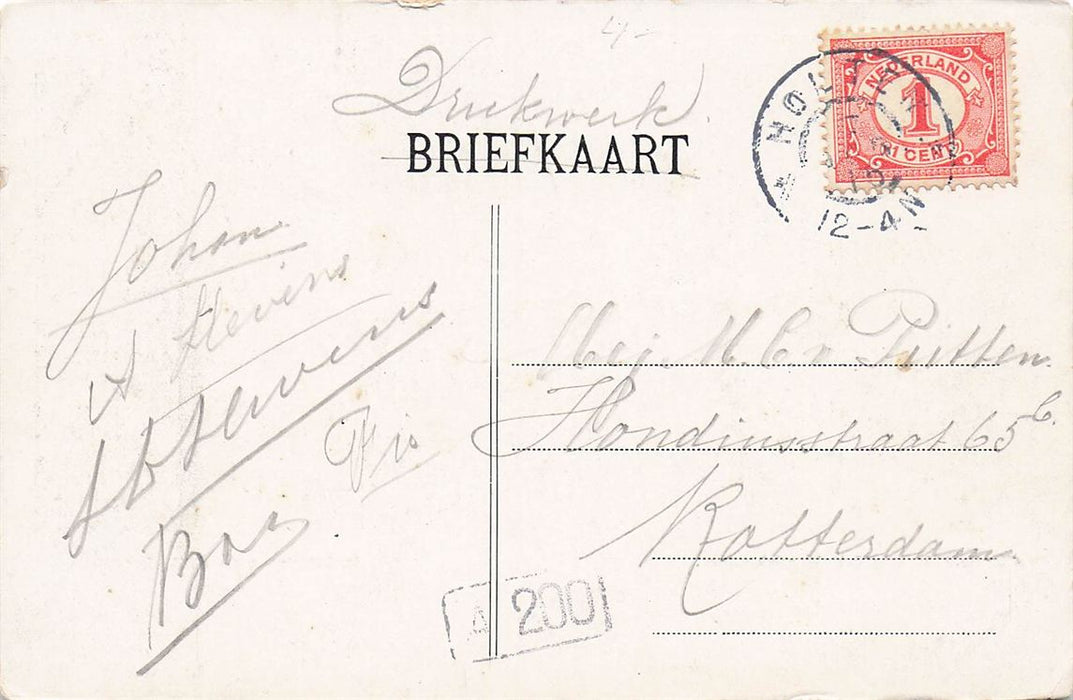 4-
Drukwerk.
BRIEFKAART
NEDERLAND
1
CENT
HOLL
12-4N
Johan
A Stevens
Stevens
Fis
Mej. M. C. v Putten.
Hondiusstraat 65 b.
Rotterdam
A 200